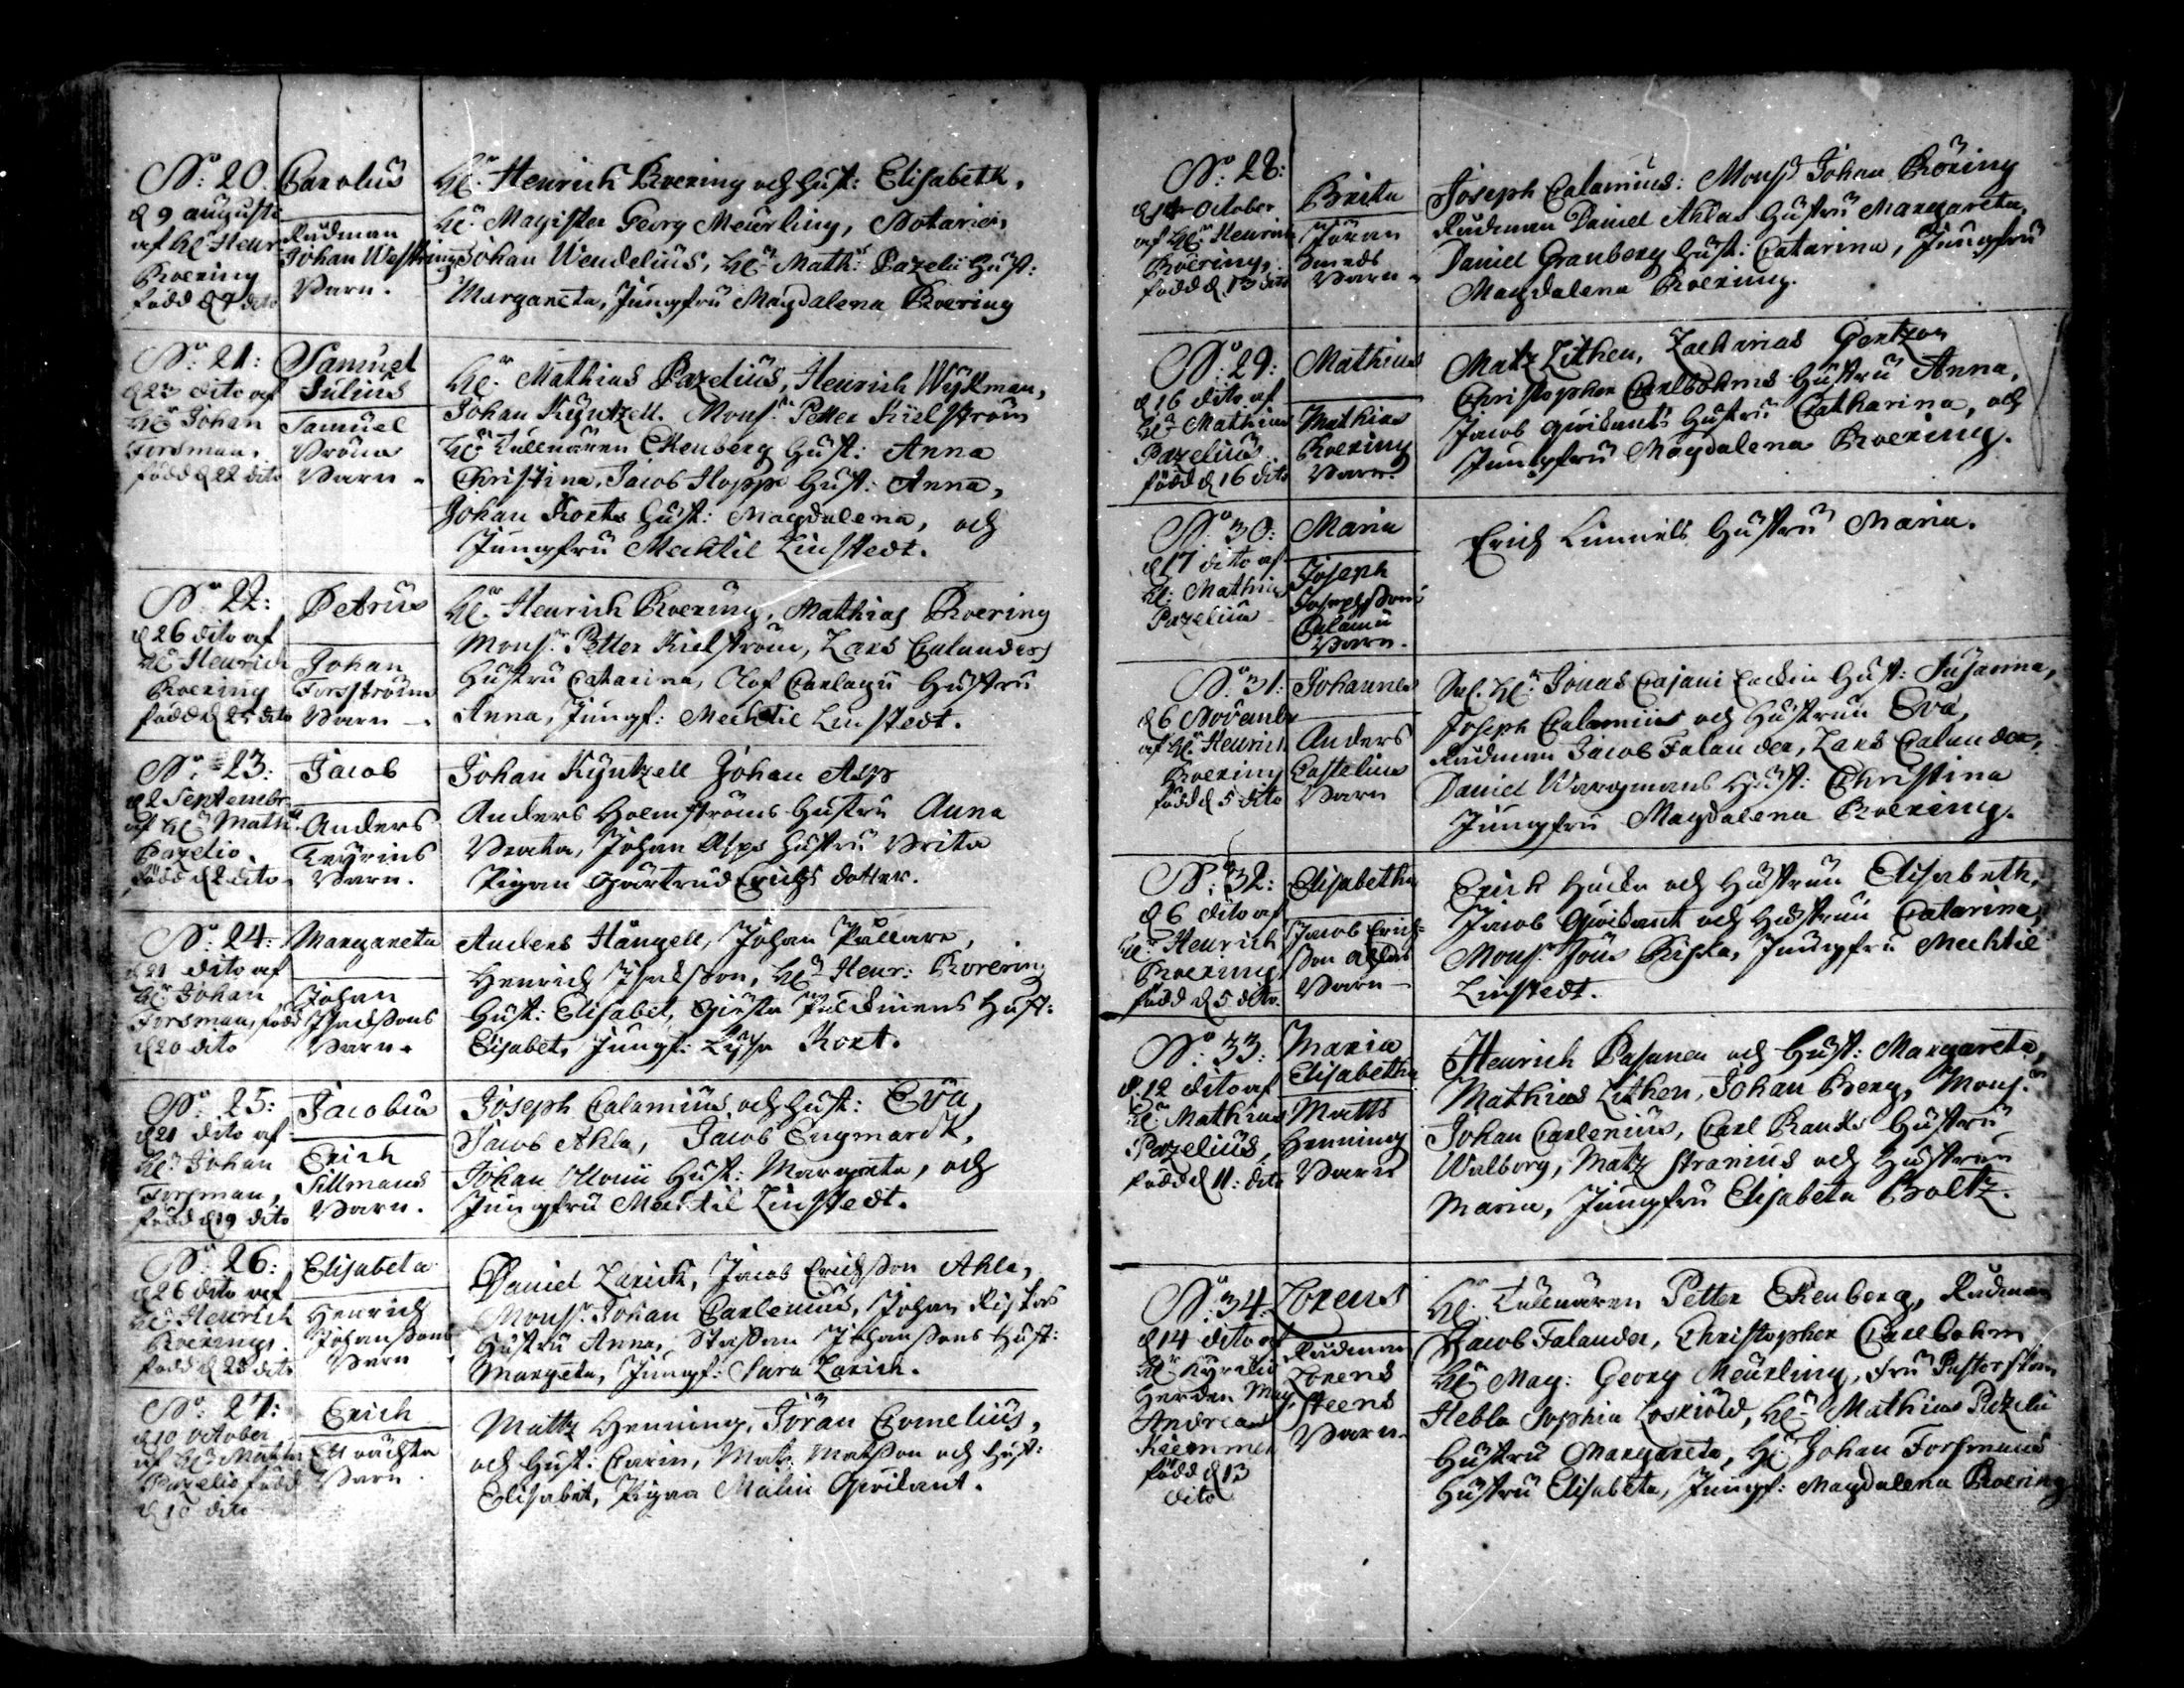 No: 20.
d 9 augusti
af Hr Henr
Roering
född d 7 dito
Carolus
Rådman
Johan Westrings
Barn.
Hr: Henrich Roering och Hust: Elisabeth,
Hr: Magister Georg Meurling, Notarien
Johan Wendelius, Hr: Math: Pazelii Hust:
Margareta, Jungfru Magdalena Roering
No: 21:
d 23 dito af
Hr Johan
Forsman,
född d 22 dito
Samuel
Julius
Samuel
Barn.
Hr: Mathias Pazelius, Henrich Wijkman,
Johan Kijntzell. Monsr: Petter Kielström
Hr: Tullnären Ekenberg Hust: Anna
Christina, Jacob Hopp Hust: Anna,
Johan Korts Hust: Magdalena, och
Jungfru Mechtil Linstedt.
No: 22:
d 26 dito af
Hr Henrich
Roering
född d 25 dito
Petrus
Johan
Forsströms
Barn
Hr: Henrich Roering, Mathias Roering
Monsr. Petter Kielström, Lars Calanders
Hustru Catarina, Olof Hustru
Anna, Jungf: Mechtil Linstedt.
No: 23:
d 2 Septembr
af Hr Math:
Pazelio.
född d 2 dito
Jacob
Anders
Barn.
Johan Kijntzell Johan Asp
Anders Holmströms Hustru Anna
Beata, Johan Asps Hustru Brita
Pigan Giärtrud Erichs dotter.
No: 24:
d 21 dito af
Hr Johan
Forsman, född
d 20 dito
Margareta
Johan
Isachssons
Barn.
Anders Hångell, Johan
Henrich Isachsson, Hr Henr: Roering
Hust: Elisabet, Giösta Hust:
Elisabet, Jungf: Lijsa Kort.
No: 25:
d 21 dito af
Hr: Johan
Forsman,
född d 19 dito
Jacobus
Erich
Sillmans
Barn.
Joseph Calamnius och Hust: Eva,
Jacob Ahla, Jacob Engmarck,
Johan Hust: Margreta, och
Jungfru Mechtil Linstedt.
No: 26:
d 26 dito af
Hr Henrich
Roering.
född d 23 dito
Elisabeta
Henrich
Johanssons
Barn
Daniel Larick, Jacob Erichsson Ahla,
Monsr. Johan Carlenius, Johan
Hustru Anna, Staffan Johanssons Hust:
Margeta, Jungf: Sara Larich.
No: 27:
d 10 October
af Hr Mathi
Pazelio född
d 10 dito
Erich
Ett oächta
Barn.
Mattz Henning, Jöran Cornelius,
och Hust: Carin, Matz Matsson och Hust:
Elisabet, Pigan Malin Qvickant.
No: 28:
October
af Hr Henrich
Roering,
född d. 13 dito
Brita
Jöran
Smeds
Barn
Joseph Calamnius: Monsr Johan Röring
Rådman Daniel Ahlas Hustru Margareta,
Daniel Granberg Hust: Catarina, Jungfru
Magdalena Roering.
No: 29:
d 16 dito af
Hr Mathias
Pazelius
född d 16 dito
Mathias
Mathias
Roering
Barn.
Matz Lithen, Zacharias Gertzon
Christopher Carlbohms Hustru Anna,
Jacob Qvickants Hustru Catharina, och
Jungfru Magdalena Roering.
No: 30:
d 17 dito af
Hr: Mathias
Pazelius
Maria
Joseph
Josephssons
Calamnii
Barn.
Erich Hustru Maria.
No: 31:
d 6 Novembr
af Hr Henrich
Roering
född d 5 dito
Johannes
Anders
Castelius
Barn
Sal. Hr: Jonas Cajani Enckia Hust: Susanna,
Joseph Calamnius och Hustrun Eva,
Rådman Jacob Falander, Lars Calander,
Daniel Wargmans Hust: Christina
Jungfru Magdalena Roering.
No: 32:
d 6 dito af
Hr Henrich
Roering
född d 5 dito.
Elisabetha
Jacob Erich-
son Ahlas
Barn
Erich och Hustrun Elisabeth,
Jacob Qvickant och Hustrun Catarina
Monsr. Jöns Jungfru Mechtil
Linstedt.
No: 33:
d. 12 dito af
Hr Mathias
Pazelius,
född d 11: dito
Maria
Elisabetha
Matts
Henning
Barn
Henrich Pasanen och Hust: Margareta,
Mathias Lithen, Johan Berg, Monsr.
Johan Carlenius, Carl Hustru
Walborg, Matz och Hustrun
Maria, Jungfru Elisabeta Boltz.
No: 34:
d 14 dito af
Hr Kyrckio
Herden Mag:
Andreas
född d 13
dito
Lorens
Rådman
Lorens
Steens
Barn.
Hr: Tullnären Petter Ekenberg, Rådman
Jacob Falander, Christopher Carlbohm
Hr Mag: Georg Meurling, Fru Pastorskan
Hebla Sophia Hr: Mathias Pazelii
Hustru Margareta, Hr: Johan Forsmans
Hustru Elisabeta, Jungf: Magdalena Roering